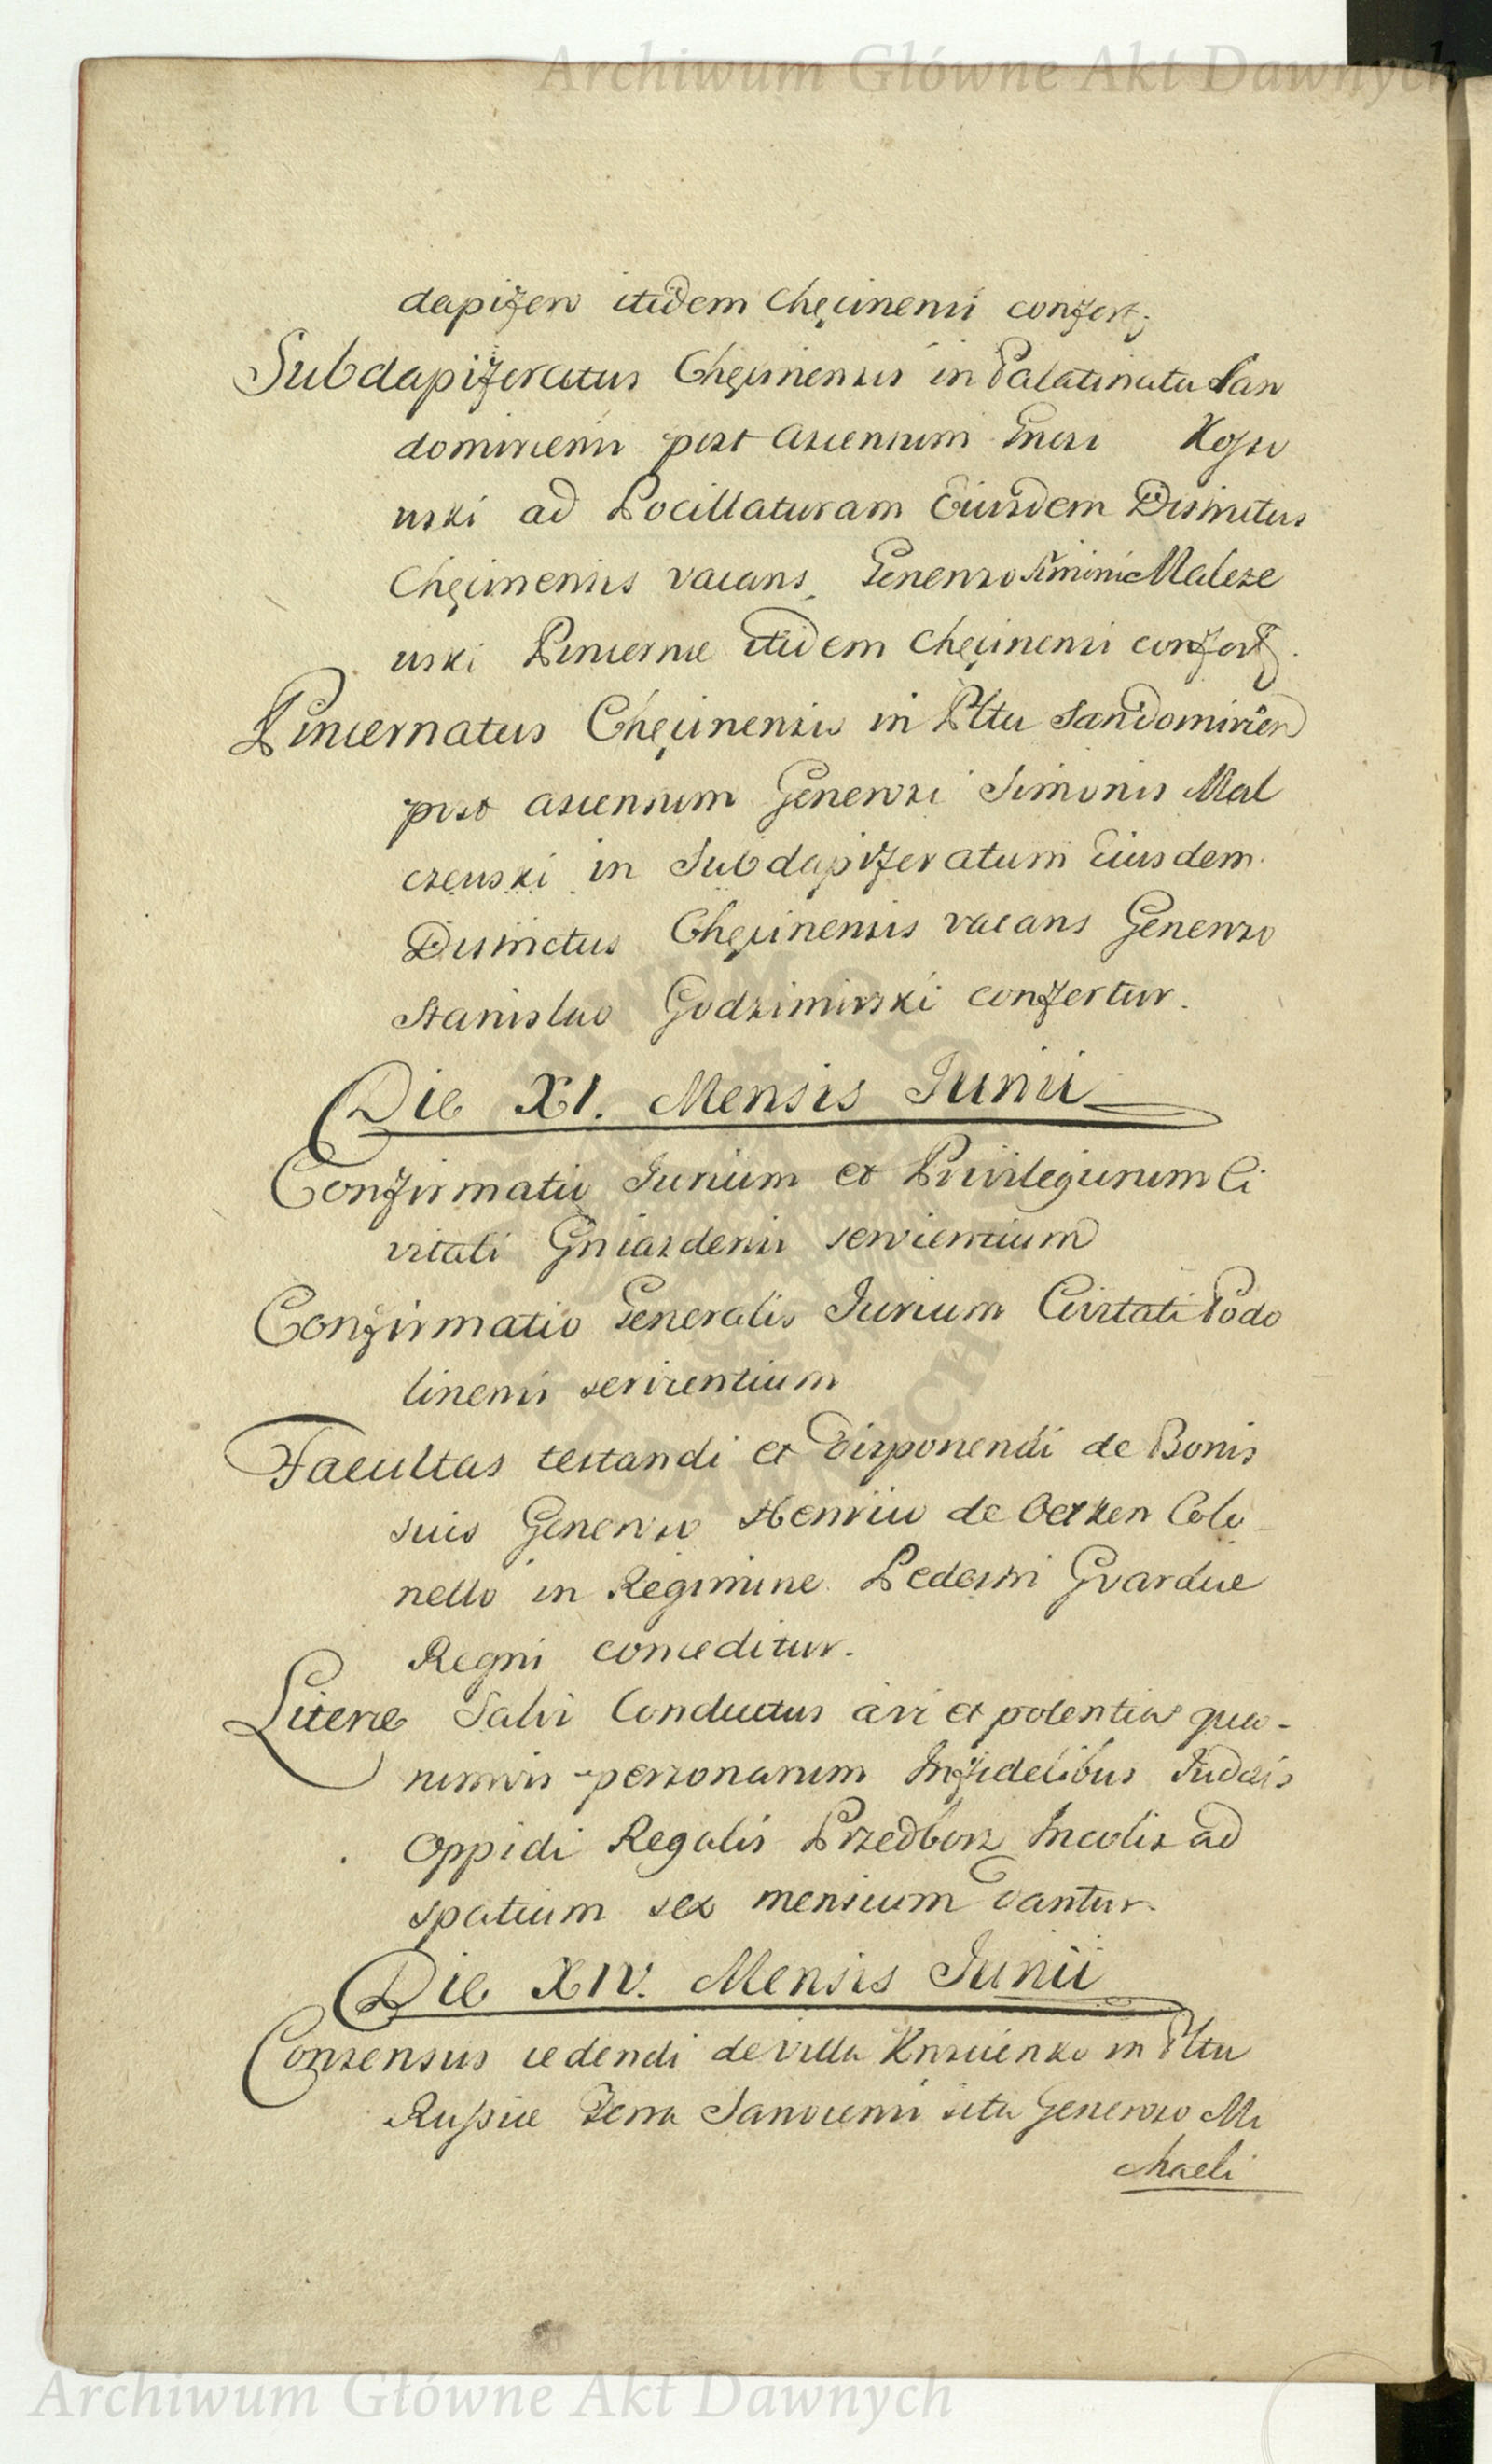 Archiwum Główne Akt Dawnych
dapifero itidem Chęcinensi confert;
Subdapiferatus Chęcinensis in Palatinatu San
domiriensi post ascensum Gnosi Kosso
wski ad Pocillaturam Eiusdem Districtus
Chęcinensis vacans, Generoso Simoni Malcze
wski Pincernae itidem Chęcinensi confert.
Pincernatus Chęcinensis in Pltu Sandomirien
post ascensum Generosi Simonis Mal
czewski in Subdapiferatum Eiusdem
Districtus Chęcinensis vacans Generoso
Stanislao Godzimirski confertur.
Die XI. Mensis Junii
Confirmatio Jurium et Privilegiorum Ci
vitati Gniazdensi servientium
Confirmatio Generalis Jurium Civitati Podo
linensi servientium
Facultas testandi et disponendi de Bonis
suis Generoso Henrico de Oetken Colo
nello in Regimine Pedestri Gvardiae
Regni conceditur.
Literae Salvi Conductus a vi et potentia quo-
rumvis personarum Infidelibus Judaeis
Oppidi Regalis Przedborz Incolis ad
spatium sex mensium dantur.
Die XIV. Mensis Junii
Consensus cedendi de Villa in Pltu
Russiae Terra Sanocensi sita Generoso Mi
chaeli
Archiwum Główne Akt Dawnych